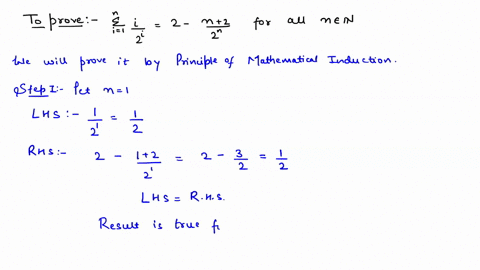 To prove:- \sum_{i=1}^{n} \frac{i}{2^i} = 2 - \frac{n+2}{2^n} for all n∈N
We will prove it by Principle of Mathematical Induction.
Step I:- Let n=1
LHS:- \frac{1}{2^1} = \frac{1}{2}
RHS:- 2 - \frac{1+2}{2^1} = 2 - \frac{3}{2} = \frac{1}{2}
LHS = R.H.S.
Result is true f